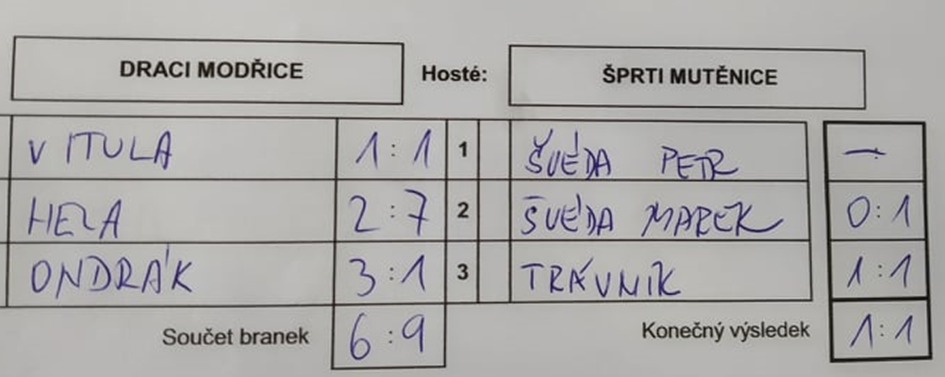 DRACI MODŘICE Hosté: ŠPRTI MUTĚNICE
VITULA 1:1 1 ŠVÉDA PETR –:
HELA 2:7 2 ŠVÉDA MAREK 0:1
ONDRÁK 3:1 3 TRÁVNÍK 1:1
Součet branek 6:9 Konečný výsledek 1:1